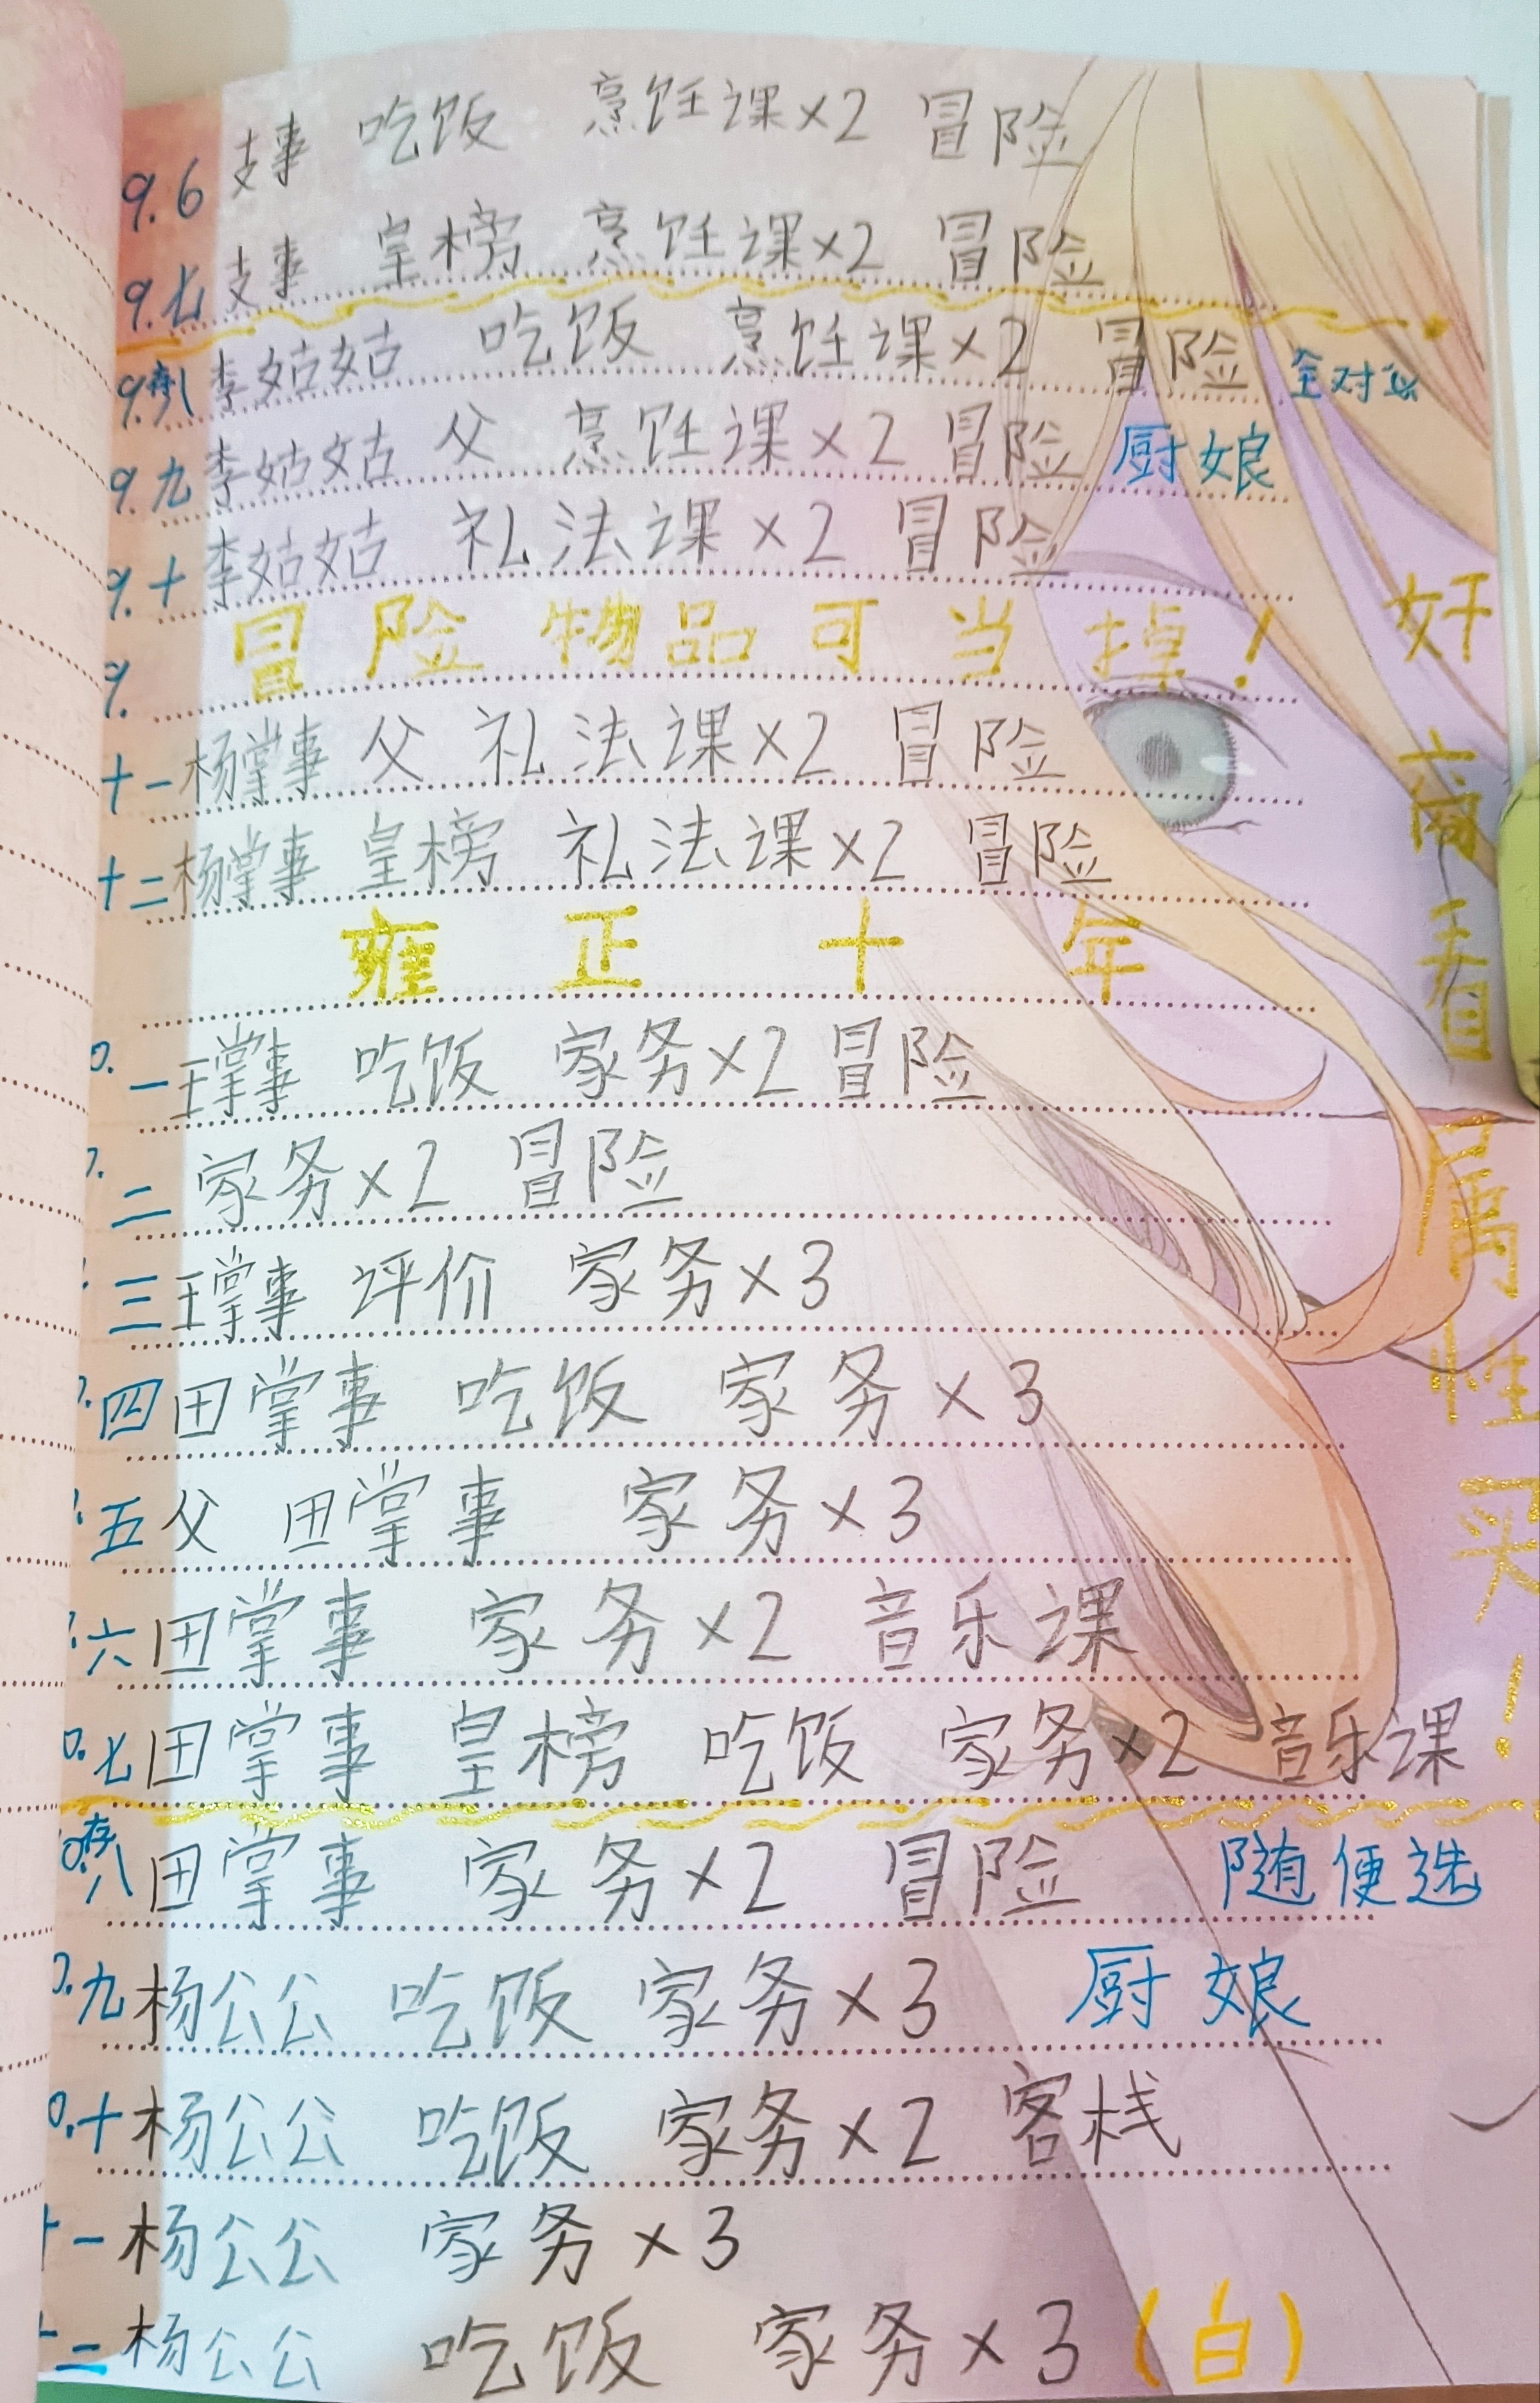 9.6 支事 吃饭 烹饪课×2 冒险
9.七 支事 皇榜 烹饪课×2 冒险
9.存八 李姑姑 吃饭 烹饪课×2 冒险 全对
9.九 李姑姑 父 烹饪课×2 冒险 厨娘
9.十 李姑姑 礼法课×2 冒险
9. 冒险物品可当掉!
十一 杨掌事 父 礼法课×2 冒险
十二 杨掌事 皇榜 礼法课×2 冒险
雍正十年
0.一 王掌事 吃饭 家务×2 冒险
二 家务×2 冒险
三 王掌事 评价 家务×3
四 田掌事 吃饭 家务×3
五 父 田掌事 家务×3
六 田掌事 家务×2 音乐课
0.七 田掌事 皇榜 吃饭 家务×2 音乐课
0.存八 田掌事 家务×2 冒险 随便选
九 杨公公 吃饭 家务×3 厨娘
0.十 杨公公 吃饭 家务×2 客栈
十一 杨公公 家务×3
十二 杨公公 吃饭 家务×3(白)
奸商
!